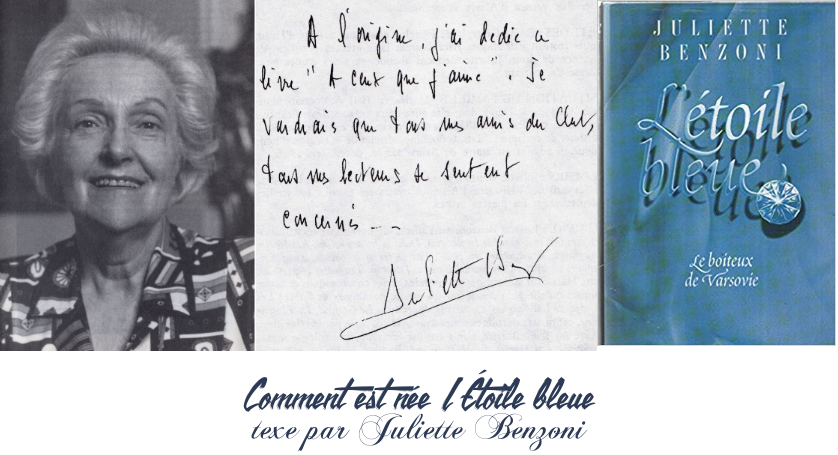 A l'origine, j'ai dédié ce
livre "A ceux que j'aime". Je
voudrais que tous mes amis du Club,
tous mes lecteurs se sentent
concernés...
JULIETTE
BENZONI
L'étoile
bleue
Le boiteux
de Varsovie
Comment est née l'Étoile bleue
texe par Juliette Benzoni